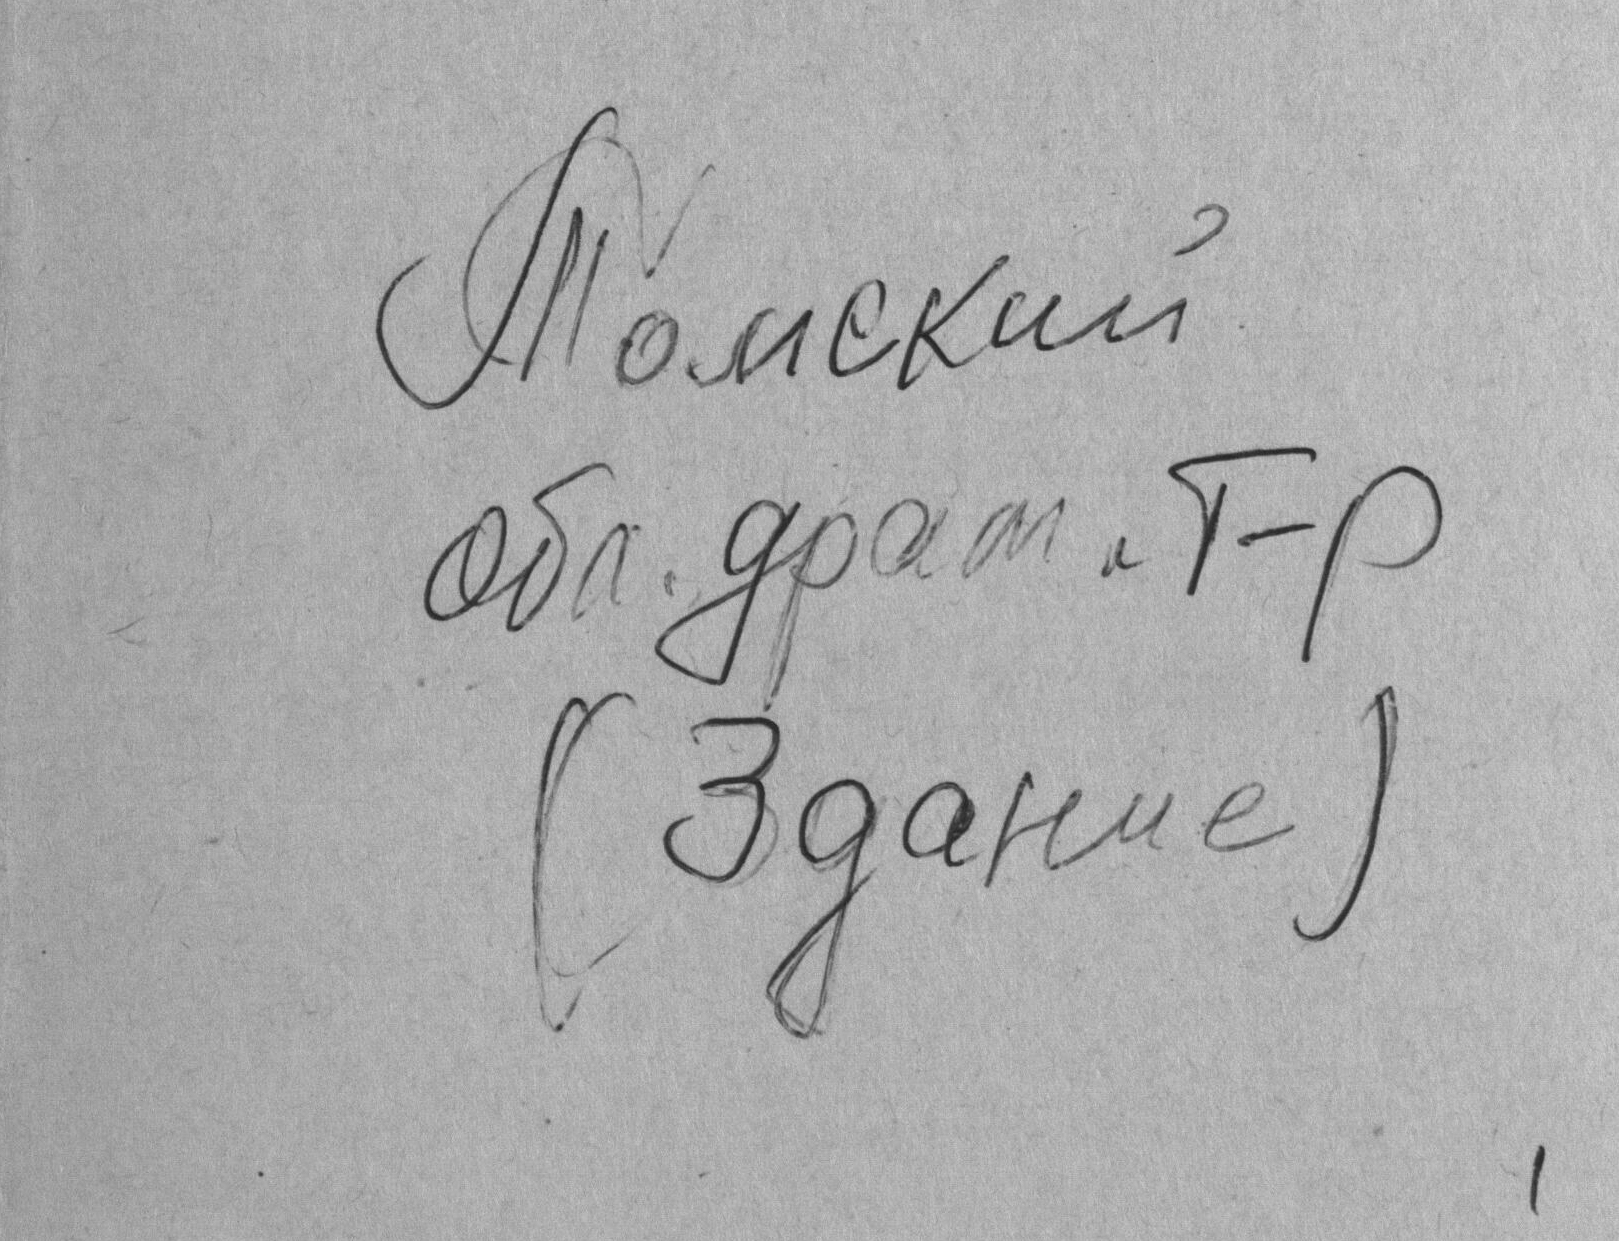 Томский
обл. драм. т-р
(Здание)